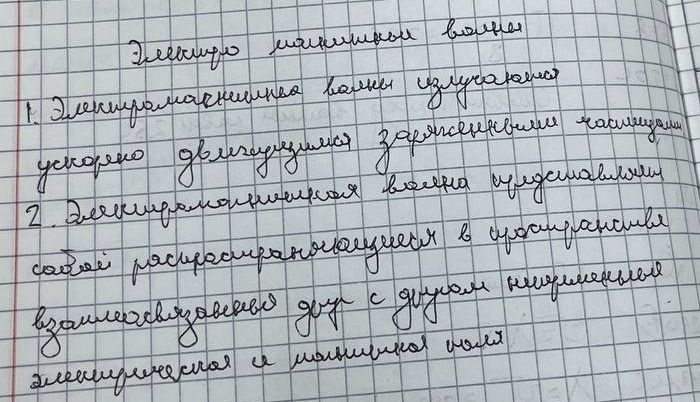 Электро магнитные волны
1. Электромагнитные волны излучаются
ускорено движущимися заряженными частицами
2. Электромагнитная волна представляет
собой распространяющиеся в пространстве
взаимосвязанные друг с другом переменные
электрическая и магнитная поля